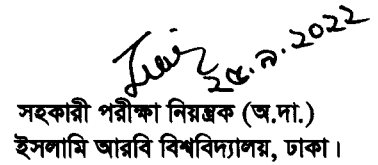 ২৫.৯.২০২২
সহকারী পরীক্ষা নিয়ন্ত্রক (অ.দা.)
ইসলামি আরবি বিশ্ববিদ্যালয়, ঢাকা।